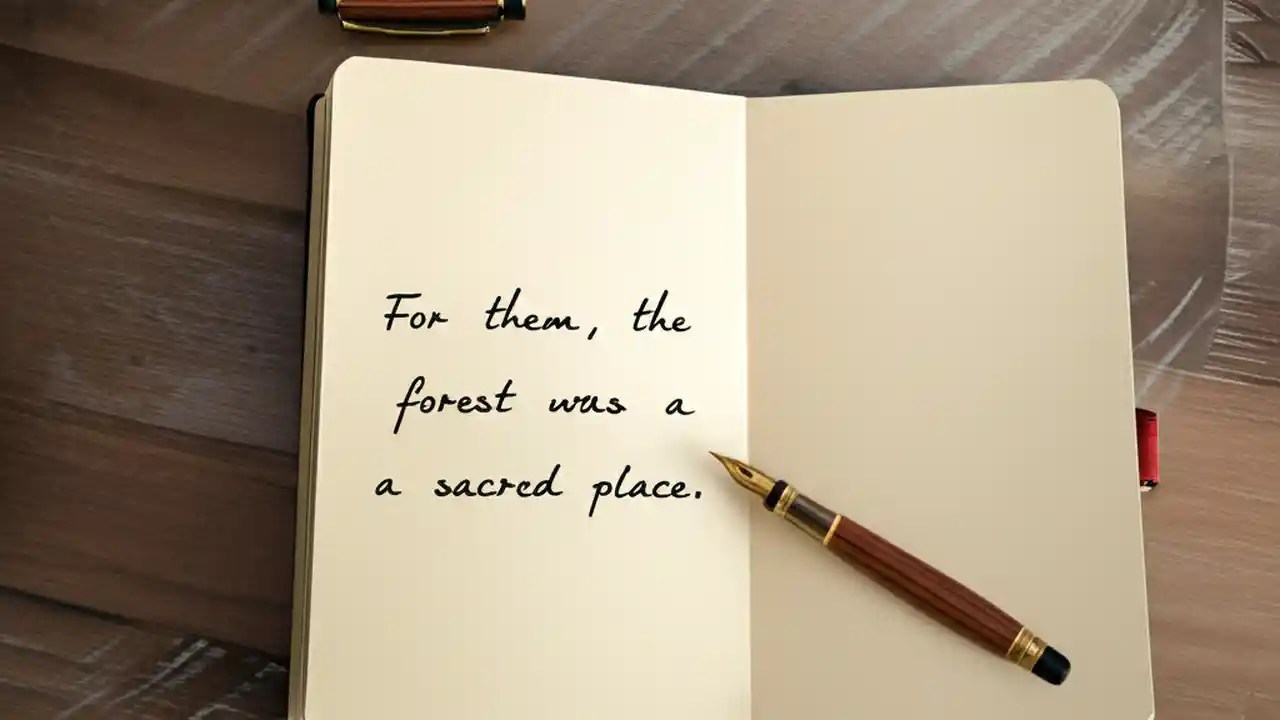 For them, the
forest was a
a sacred place.